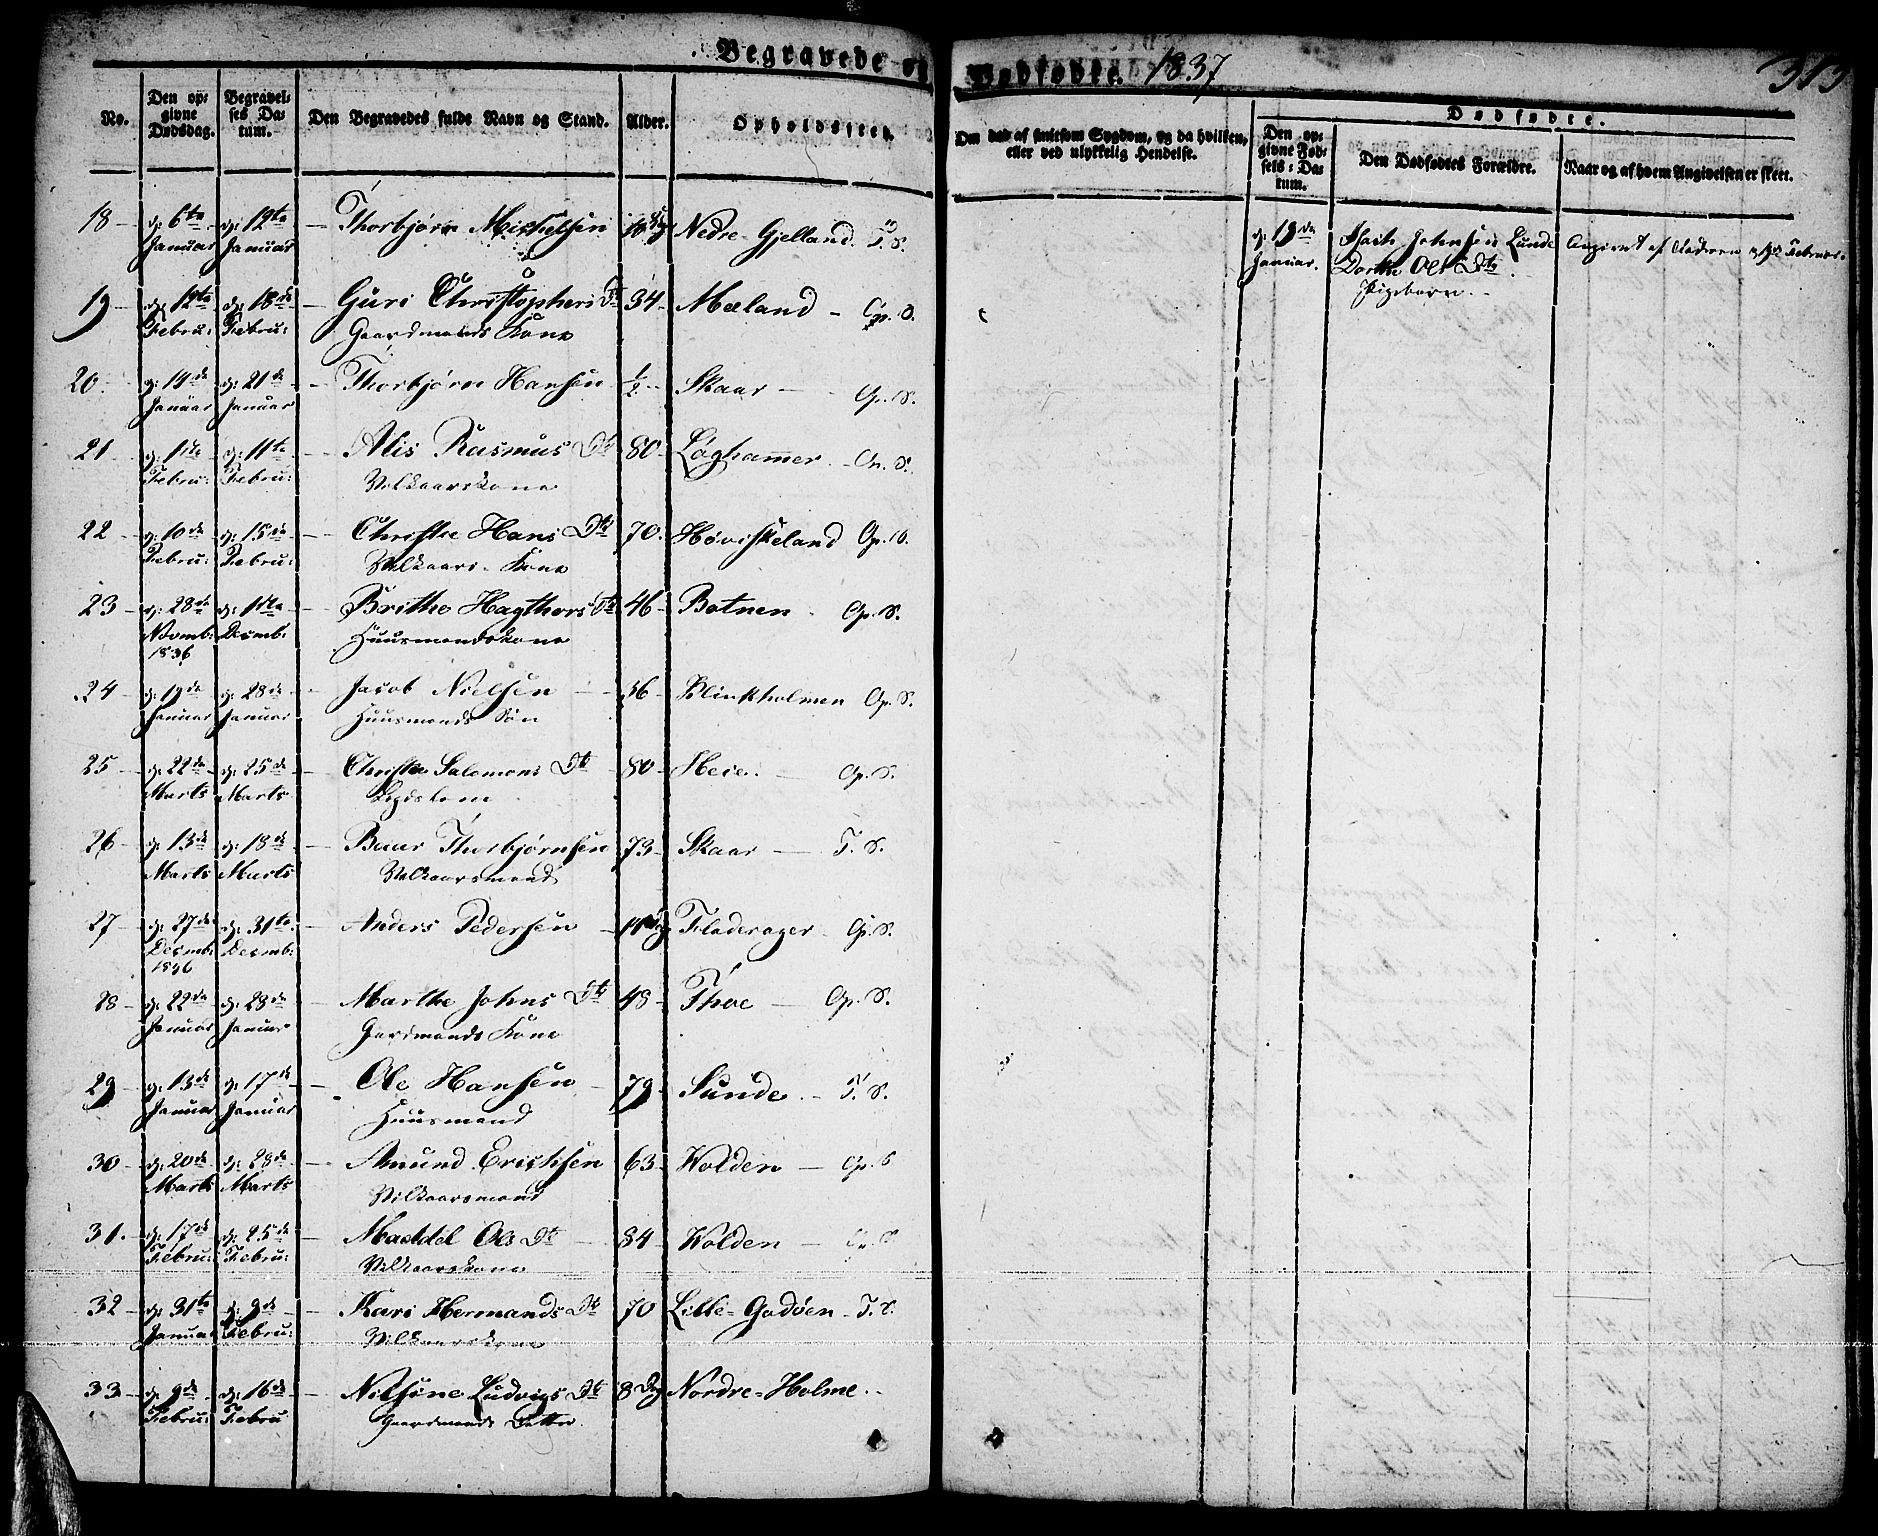 Begravede og Dødfødte. 1837 313
No.
Den opgivne Dødsdag.
Begravelses Datum.
Den Begravedes fulde Navn og Stand.
Alder.
Opholdssted.
Om død af smitsom Sygdom, og da hvilken, eller ved ulykkelig Hendelse.
Dødfødte.
Den opgivne Fødsels-Datum.
Den Dødfødtes Forældre.
Naar og af hvem Angivelsen er skeet.
18 d: 6te d: 12te Thorbjørn Michelsen Nedre-Gjelland. T. S.
Januar Januar
19 d: 12te d: 18de Guri Christophers Dtr 34 Mæland Op. S.
Febru: Febru: Gaardmands Kone
20. d: 14de d: 21de Thorbjørn Hansen 1/2 Skaar Op. S.
Januar Januar
21 d: 11te Alis Rasmus Dtr 80 Løghammer Op. S.
Febru: Febru: Vilkaarskone
22 d: 10de d: 15de Christie Hans Dtr 70. Høviskeland Op. S.
Febru: Febru: Vilkaars-Kone
23 d: 28de d: Brithe Hagthors Dtr 46 Botnen Op. S.
Novemb: Desemb: Huusmandskone
1836
24 d: 19de d: 28de Jacob Nielsen 36 Klinkholmen Op. S.
Januar Januar Huusmands Søn
25 d: 22de d: 25de Christie Salomons Dtr 80 Heie. Op. S.
Marts Marts
26 d: 13de d: 18de Baar Thorbjørnsen 73 Skaar T. S.
Marts Marts Vilkaarsmand
27 d: 27de d: 31te Anders Pedersen Fladerager Op. S.
Desmb: Desmb:
1836
28 d: 22de d: 28de Marthe Johns Dtr 48 Thoe Op. S.
Januar Januar Gardmands Kone
29 d: 13de d: 17de Ole Hansen 79 Sunde T. S.
Januar Januar Huusmand
30 d: 20de d: 28de Amund Erichsen 63 Wolden Op. S
Marts Marts Vilkaarsmand
31. d: 17de d: 25de Magdel Ols Dtr 84 Wolden
Febru: Febru: Vilkaarskone
32 d: 31te d: 9de Kari Hermands Dtr 70 Lille-Godøen T. S.
Januar Febru: Vilkaarskone
33 d: 9de d: 16de Nilsine Ludvigs Dtr 8 Dag Nordre-Holme
Febru: Febru Gaardmands Datter.
d: 19de Johnsen Lunde Angivet af Faderen Februar
Januar. Dorthe Ols Dtr
Pigebarn